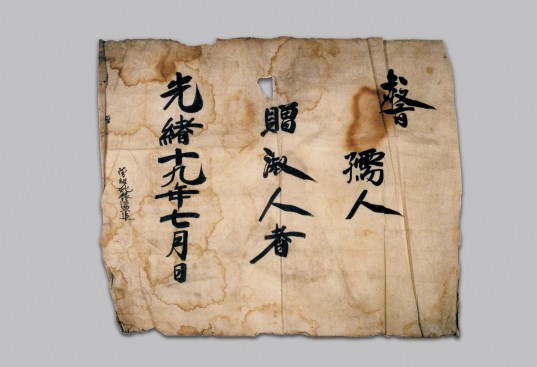 敎旨
孺人
贈淑人者
光緖十九年七月日